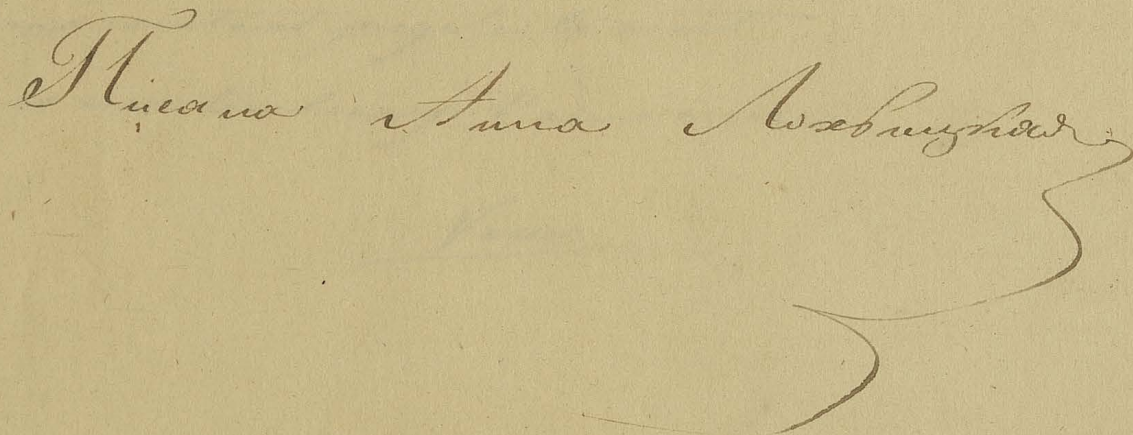 Писала Анна Лохвицкая